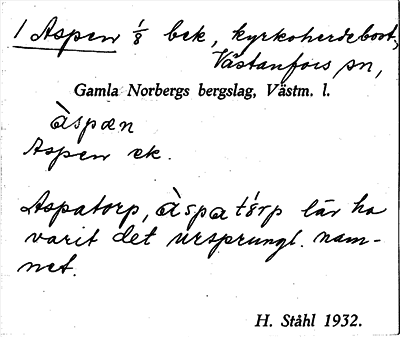 1 Aspen 1/8 bek, kyrkoherdebost,
Västanfors sn,
Gamla Norbergs bergslag, Västm. l.
àspæn
Aspen ek.
Aspatorp, àspatórp lär ha
varit det ursprungl. nam-
net.
H. Ståhl 1932.